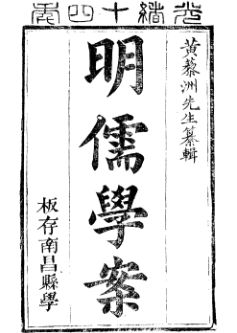 光緒十四年
黃藜洲先生纂輯
明儒學案
板存南昌縣學